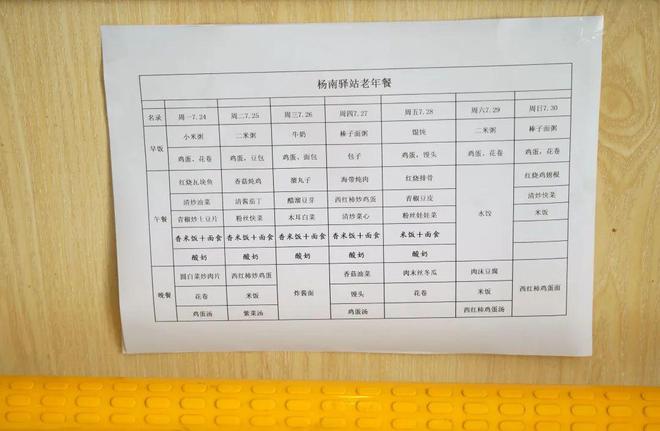 杨南驿站老年餐
名录 周一7.24 周二7.25 周三7.26 周四7.27 周五7.28 周六7.29 周日7.30
早饭 小米粥 二米粥 牛奶 棒子面粥 馄饨 二米粥 棒子面粥
鸡蛋、花卷 鸡蛋，豆包 鸡蛋、面包 包子 鸡蛋，馒头 鸡蛋、花卷 鸡蛋，花卷
午餐 红烧瓦块鱼 香菇炖鸡 溜丸子 海带炖肉 红烧排骨 水饺 红烧鸡翅根
清炒油菜 清酱茄丁 醋溜豆芽 西红柿炒鸡蛋 青椒豆皮 清炒快菜
青椒炒土豆片 粉丝快菜 木耳白菜 清炒菜心 粉丝娃娃菜 米饭
香米饭+面食 香米饭+面食 香米饭+面食 香米饭+面食 米饭+面食
酸奶 酸奶 酸奶 酸奶 酸奶
晚餐 圆白菜炒肉片 西红柿炒鸡蛋 炸酱面 香菇油菜 肉末丝冬瓜 肉沫豆腐 西红柿鸡蛋面
花卷 米饭 馒头 花卷 米饭
鸡蛋汤 紫菜汤 鸡蛋汤 西红柿鸡蛋汤